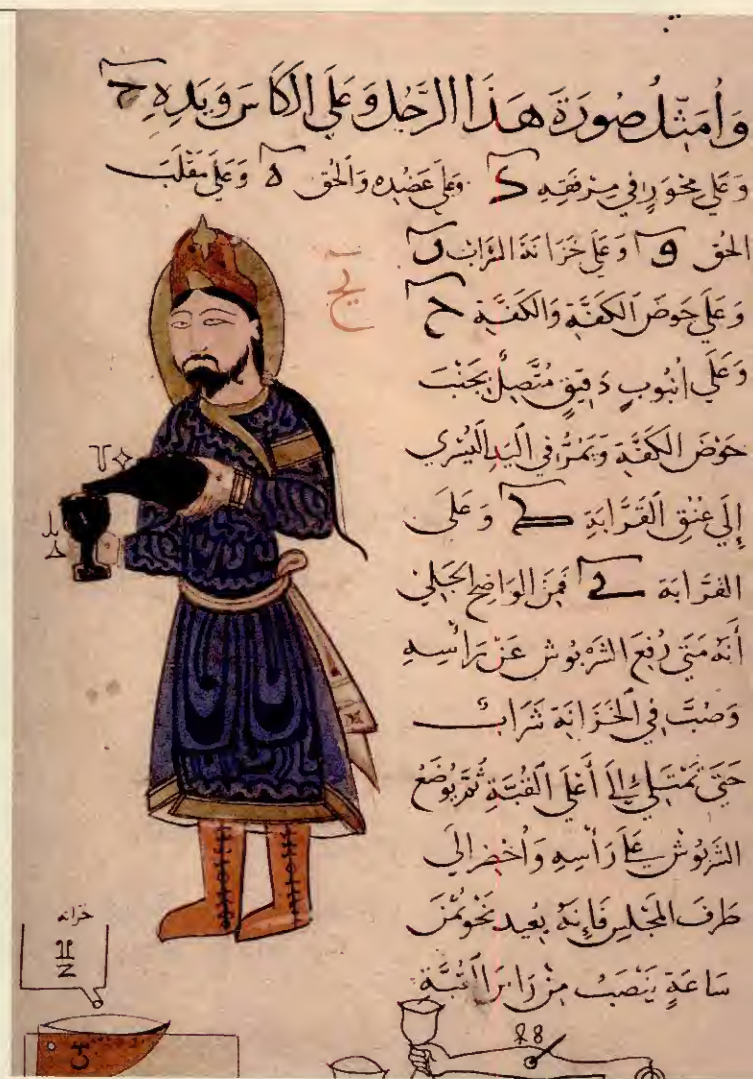 وَأُمَثِّلُ صُورَةَ هَذَا الرَّجُلِ وَعَلَى الكَأسِ وَيَدِهِ ح
وَعَلَى مِحْوَرٍ فِي مِرْفَقِهِ وَعَلَى عَضُدِهِ وَالحُقِّ ه وَعَلَى مَقْلَبِ
الحُق و وَعَلَى خَزَانَة الشَّرَابِ
وَعَلَى حَوْضَ الكَفَّةِ وَالكَفَّةِ ح
وَعَلَى أُنْبُوبٍ دَقِيقٍ مُتَّصِلٍ بِجَنْبِ
حَوْضَ الكَفَّةِ وَيَمُرُّ فِي اليَدِ اليُسْرَى
إِلَى عُنُقِ القَرَّابَةِ وَعَلَى
القَرَّابَة فَمِنَ الوَاضِحِ الجَلِيّ
أَنَّهُ مَتَى رُفِعَ الشَّرْبُوش عَنْ رَأْسِهِ
وَصُبَّ فِي الخَزَانَةِ شَرَابٌ
حَتَّى تَمْتَلِئ إِلَى أَعْلَى القُبَّةِ ثُمَّ يُوضَعُ
الشَّرْبُوش عَلَى رَأْسِهِ وَأُحْضِرَ إِلَى
طَرَفَ المَجْلِسِ فَإِنَّهُ بُعَيد نَحْوِ ثُمْنِ
سَاعَةٍ يَنْصَبُّ مِنْ القُبَّةِ
خزانة